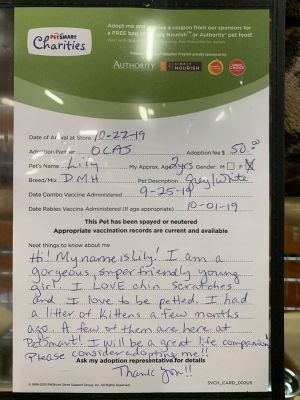 PETSMART
Charities
Adopt me and receive a coupon from our sponsors for
a FREE bag of Simply Nourish™ or Authority® pet food!
AUTHORITY
SIMPLY
NOURISH
Date of Arrival at Store 10-22-19
Adoption Partner OCAS Adoption fee $ 50.00
Pet's Name Lily My Approx. Age 2yrs Gender M F X
Breed/Mix DMH Pet Description Grey/White
Date Combo Vaccine Administered 9-25-19
Date Rabies Vaccine Administered (If age appropriate) 10-01-19
This Pet has been spayed or neutered
Appropriate vaccination records are current and available
Neat things to know about me
Hi! My name is Lily! I am a
gorgeous, super friendly young
girl. I LOVE chin scratches
and I love to be petted. I had
a litter of Kittens a few months
ago. A few of them are here at
PetSmart! I will be a great life companion!
Please consider adopting me!!
Ask my adoption representative for details
Thank you!!
SVCH_CARD_002US